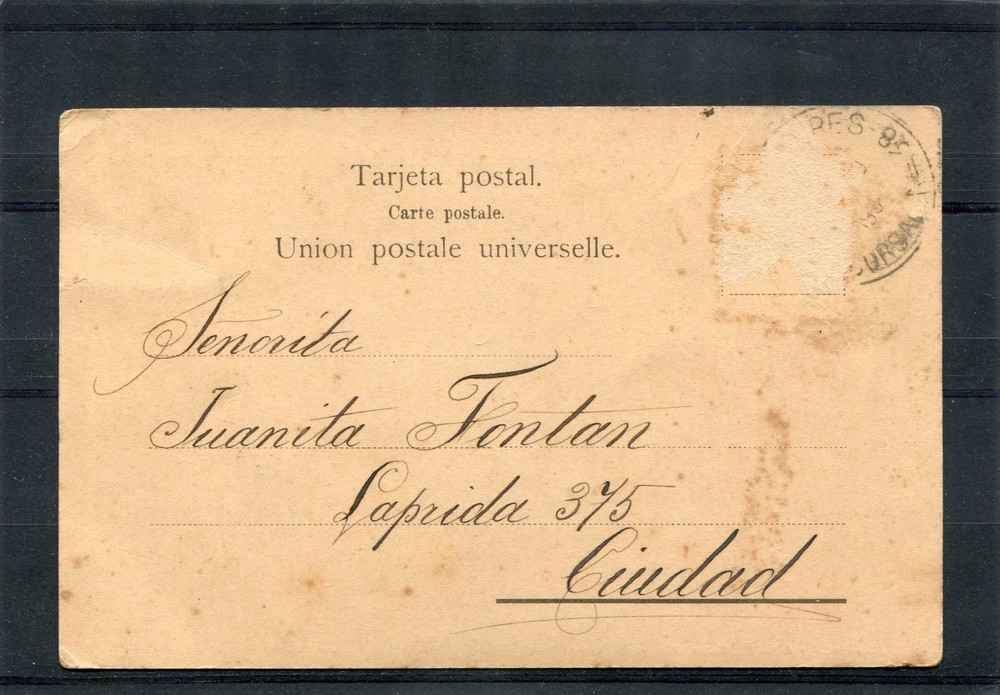 Tarjeta postal.
Carte postale.
Union postale universelle.
Señorita
Juanita Fontan
Laprida 375
Ciudad